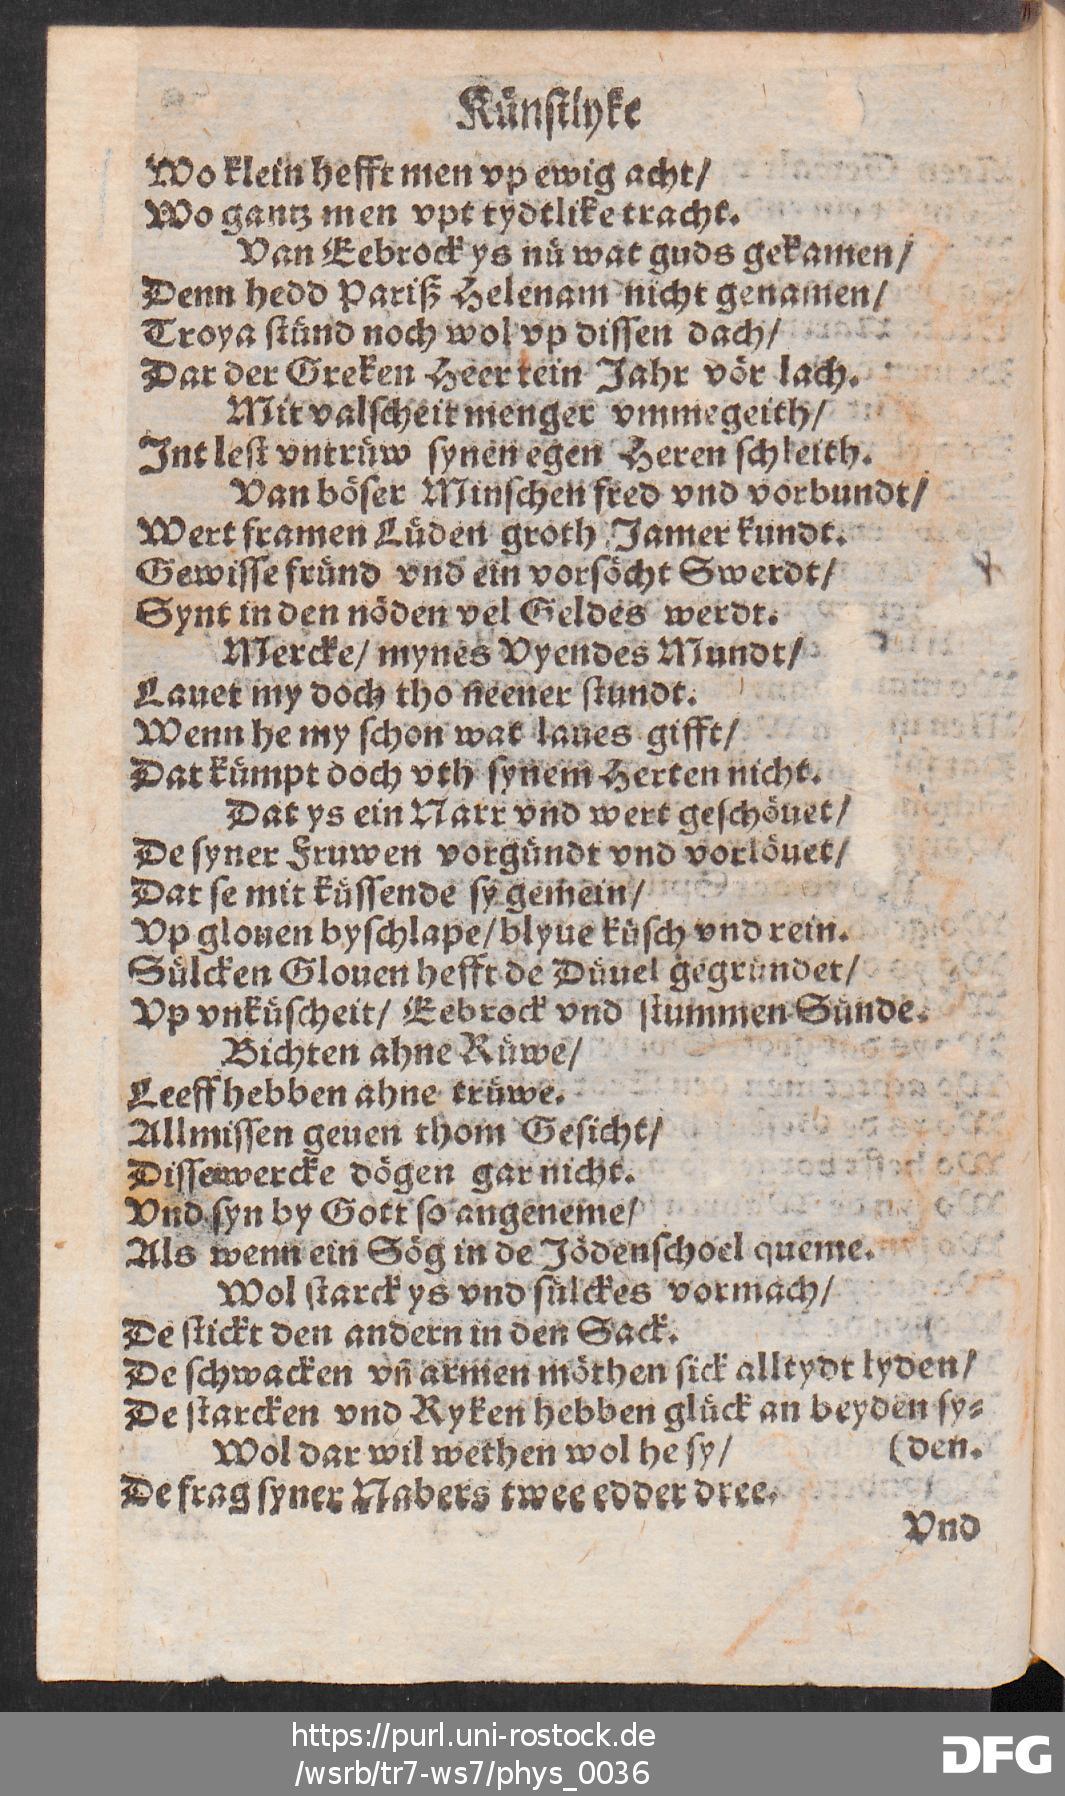 Künstlyke
Wo klein hefft men vp ewig acht/
Wo gantz men vpt tydtlike tracht.
Van Eebrock ys nü wat guds gekamen/
Denn hedd Pariß Helenam nicht genamen/
Troya stünd noch wol vp dissen dach/
Dar der Greken Heer tein Jahr vör lach.
Mit valscheit menger vmmegeith/
Int lest vntrüw synen egen Heren schleith.
Van böser Minschen fred vnd vorbundt/
Wert framen Lüden groth Jamer kundt.
Gewisse fründ vnd ein vorsöcht Swerdt/
Synt in den nöden vel Geldes werdt.
Mercke/ mynes Vyendes Mundt/
Lauet my doch tho neener stundt.
Wenn he my schon wat laues gifft/
Dat kümpt doch vth synem Herten nicht.
Dat ys ein Narr vnd wert geschöuet/
De syner Fruwen vorgündt vnd vorlöuet/
Dat se mit küssende sy gemein/
Vp glouen byschlape/ blyue küsch vnd rein.
Sülcken Glouen hefft de Düuel gegründet/
Vp vnküscheit/ Eebrock vnd stummen Sünde.
Bichten ahne Rüwe/
Leeff hebben ahne trüwe.
Allmissen geuen thom Gesicht/
Disse wercke dögen gar nicht.
Vnd syn by Gott so angeneme/
Als wenn ein Sög in de Jödenschoel queme.
Wol starck ys vnd sülckes vormach/
De stickt den andern in den Sack.
De schwacken vn̄ armen möthen sick alltydt lyden/
De starcken vnd Ryken hebben glück an beyden sy-
Wol dar wil wethen wol he sy/ (den.
De frag syner Nabers twee edder dree.
Vnd
https://purl.uni-rostock.de
/wsrb/tr7-ws7/phys_0036
DFG